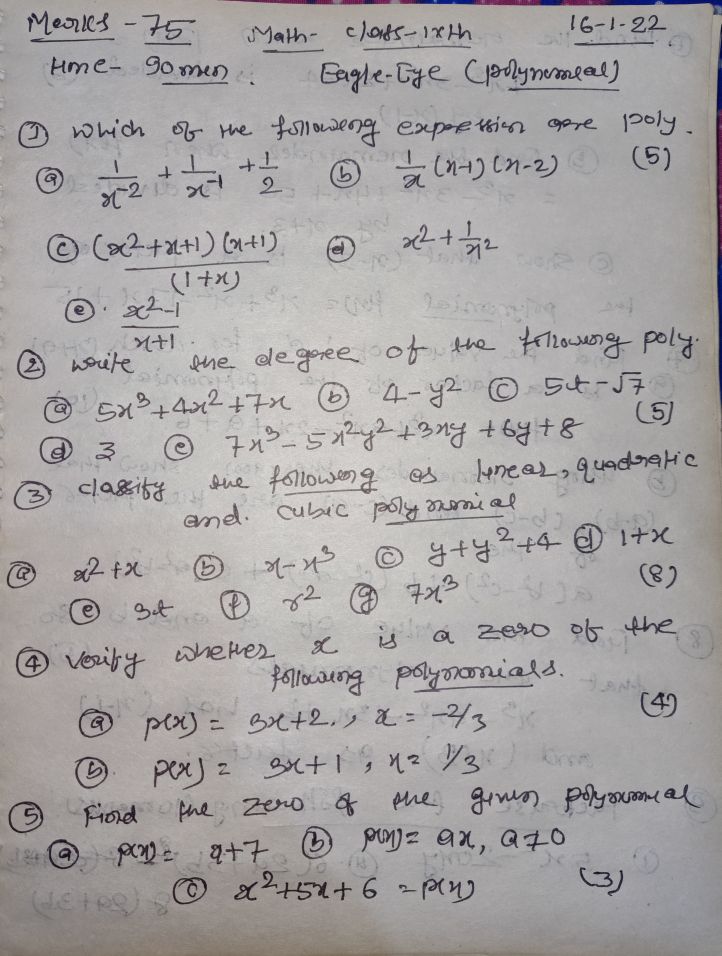 Marks - 75 Math- class-1xth 16-1-22
time- 90 min. Eagle-Eye (polynomial)
① which of the following expression are poly. (5)
ⓐ 1/x^-2 + 1/x^-1 + 1/2 ⓑ 1/x (x-1) (x-2)
ⓒ (x²+x+1) (x+1)/(1+x) ⓓ x² + 1/x²
ⓔ. x²-1/x+1
② write the degree of the following poly.
ⓐ 5x³+4x²+7x ⓑ 4-y² ⓒ 5t-√7 (5)
ⓓ 3 ⓔ 7x³-5x²y²+3xy+6y+8
③ classify the following as linear, quadratic
and. cubic polynomial
ⓐ x²+x ⓑ x-x³ ⓒ y+y²+4 ⓓ 1+x
ⓔ 3t ⓕ r² ⓖ 7x³ (8)
④ Verify whether x is a zero of the
following polynomials.
ⓐ p(x) = 3x+2, x = -2/3 (4)
ⓑ. p(x) = 3x+1, x = 1/3
⑤ Find the zero of the given polynomial
ⓐ p(x) = x+7 ⓑ p(x) = ax, a≠0
ⓒ x²+5x+6 = p(x) (3)